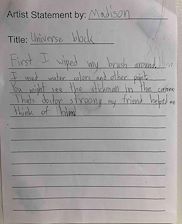 Artist Statement by: Madison
Title: Universe block
First I wiped my brush around.
I used water colors and other paints
You might see the stickman in the corner
Thats doctor stroong my friend helped me
think of him